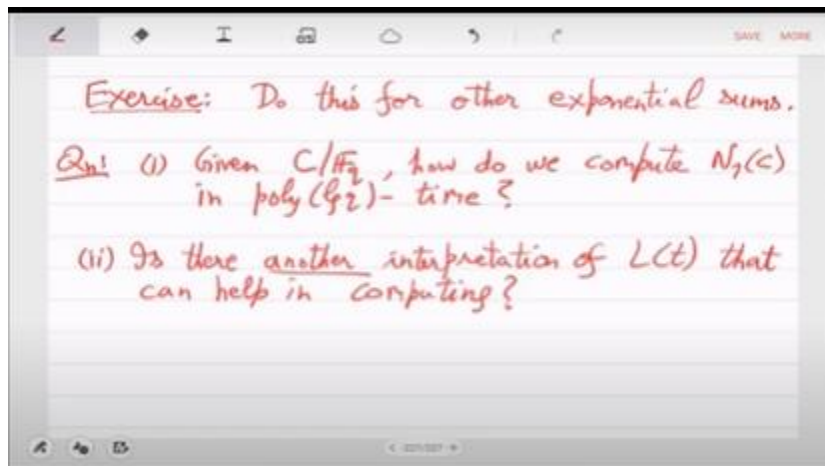 SAVE MORE
Exercise: Do this for other exponential sums.
Qn: (i) Given C/𝔽_q, how do we compute N₁(C)
in poly(lg q)-time?
(ii) Is there another interpretation of L(t) that
can help in computing?